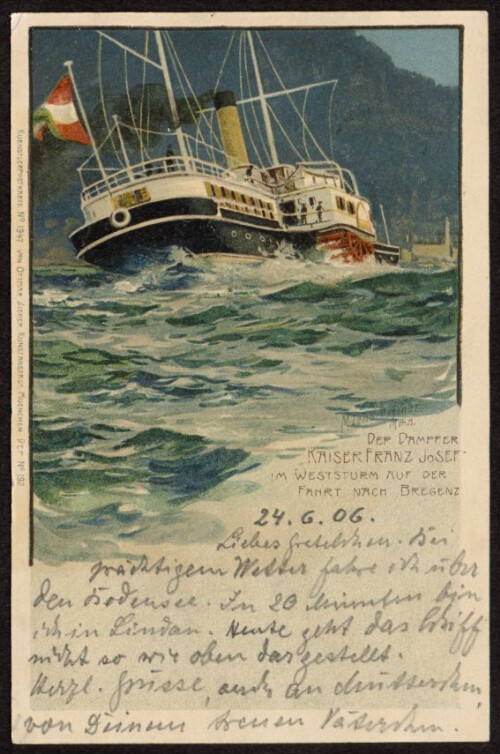 DER DAMPFER
KAISER FRANZ JOSEF
IM WESTSTURM AUF DER
FAHRT NACH BREGENZ
24.6.06.
Liebes Gretelchen. Bei
prächtigem Wetter fahre ich über
den Bodensee. In 20 Minuten bin
ich in Lindau. Heute geht das Schiff
nicht so wie oben dargestellt.
Herzl. Grüsse, auch an Mutterchen,
von Deinem treuen Väterchen.
KUENSTLERPOSTKARTE No 1947 VON OTTMAR ZIEHER KUNSTANSTALT MUENCHEN